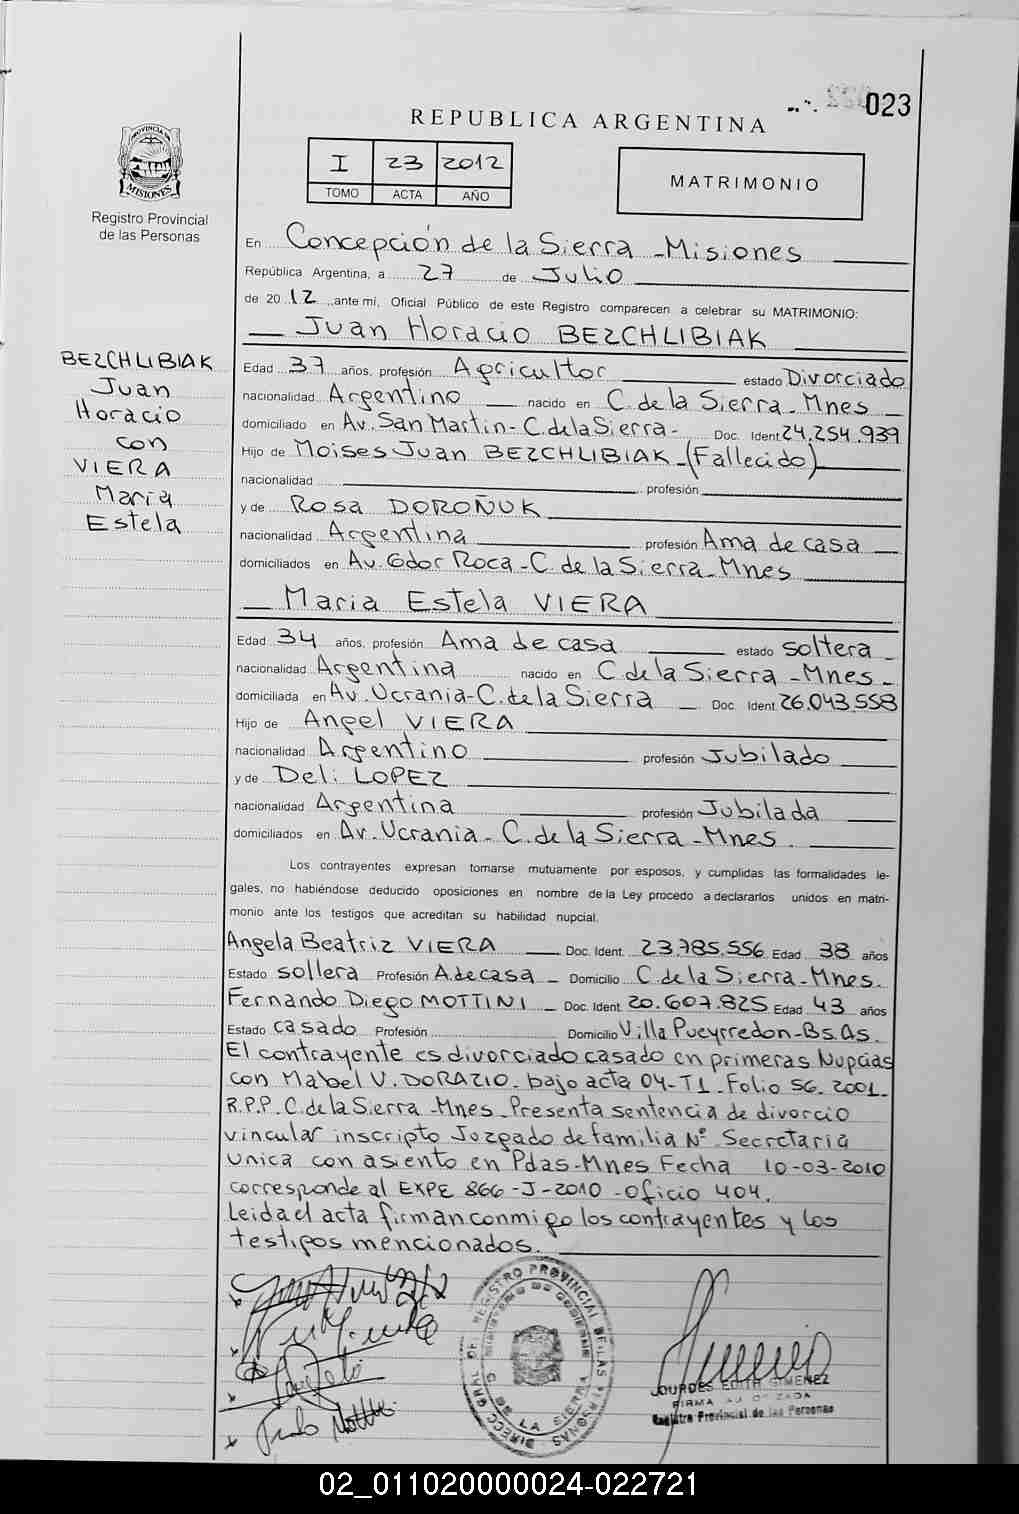 023
REPUBLICA ARGENTINA
PROVINCIA DE
MISIONES
Registro Provincial
de las Personas
I 23 2012
TOMO ACTA AÑO
MATRIMONIO
En Concepción de la Sierra - Misiones
República Argentina, a 27 de Julio
de 2012 ante mí, Oficial Público de este Registro comparecen a celebrar su MATRIMONIO:
Juan Horacio BEZCHLIBIAK
BEZCHLIBIAK
Juan
Horacio
con
VIERA
Maria
Estela
Edad 37 años, profesión Agricultor estado Divorciado
nacionalidad Argentino nacido en C. de la Sierra - Mnes
domiciliado en Av. San Martin - C. de la Sierra - Doc. Ident 24.254.939
Hijo de Moises Juan BEZCHLIBIAK - (Fallecido)
nacionalidad profesión
y de Rosa DOROÑUK
nacionalidad Argentina profesión Ama de casa
domiciliados en Av. Gdor Roca - C. de la Sierra - Mnes
Maria Estela VIERA
Edad 34 años, profesión Ama de casa estado soltera
nacionalidad Argentina nacido en C de la Sierra - Mnes -
domiciliada en Av. Ucrania - C. de la Sierra Doc. Ident. 26.043.558
Hijo de Angel VIERA
nacionalidad Argentino profesión Jubilado
y de Deli LOPEZ
nacionalidad Argentina profesión Jubilada
domiciliados en Av. Ucrania - C. de la Sierra - Mnes.
Los contrayentes expresan tomarse mutuamente por esposos, y cumplidas las formalidades le-
gales, no habiéndose deducido oposiciones en nombre de la Ley procedo a declararlos unidos en matri-
monio ante los testigos que acreditan su habilidad nupcial.
Angela Beatriz VIERA Doc. Ident. 23.785.556 Edad 38 años
Estado soltera Profesión A. de casa - Domicilio C. de la Sierra - Mnes.
Fernando Diego MOTTINI - Doc. Ident. 20.607.825 Edad 43 años
Estado casado Profesión Domicilio Villa Pueyrredon - Bs. As.
El contrayente es divorciado casado en primeras Nupcias
con Mabel V. DORAZIO. bajo acta 04 - T1 - Folio 56. 2001 -
R.P.P. C. de la Sierra - Mnes - Presenta sentencia de divorcio
vincular inscripto Juzgado de familia Nº Secretaria
Unica con asiento en Pdas - Mnes Fecha 10-03-2010
corresponde al EXPE 866 - J - 2010 - Oficio 404.
Leida el acta firman conmigo los contrayentes y los
testigos mencionados.
DIRECC. GRAL DEL REGISTRO PROVINCIAL DE LAS PERSONAS
C. DE LA SIERRA
LOURDES EDITH GIMENEZ
FIRMA AUTORIZADA
Registro Provincial de las Personas
02_011020000024-022721